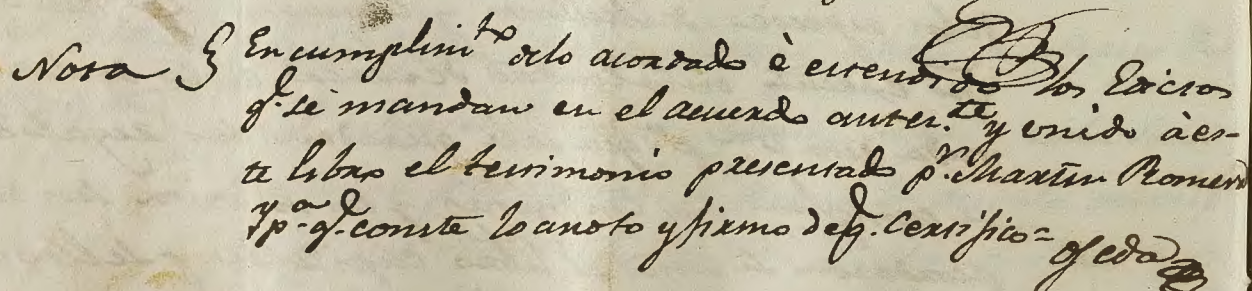 Nota § En cumplim.to delo acordado è estendido los Edictos
q.e se mandan en el acuerdo anter.te y unido à es-
te libro el testimonio presentado p.r Martin Romero
y p.a q.e conste lo anoto y firmo de q.e certifico =